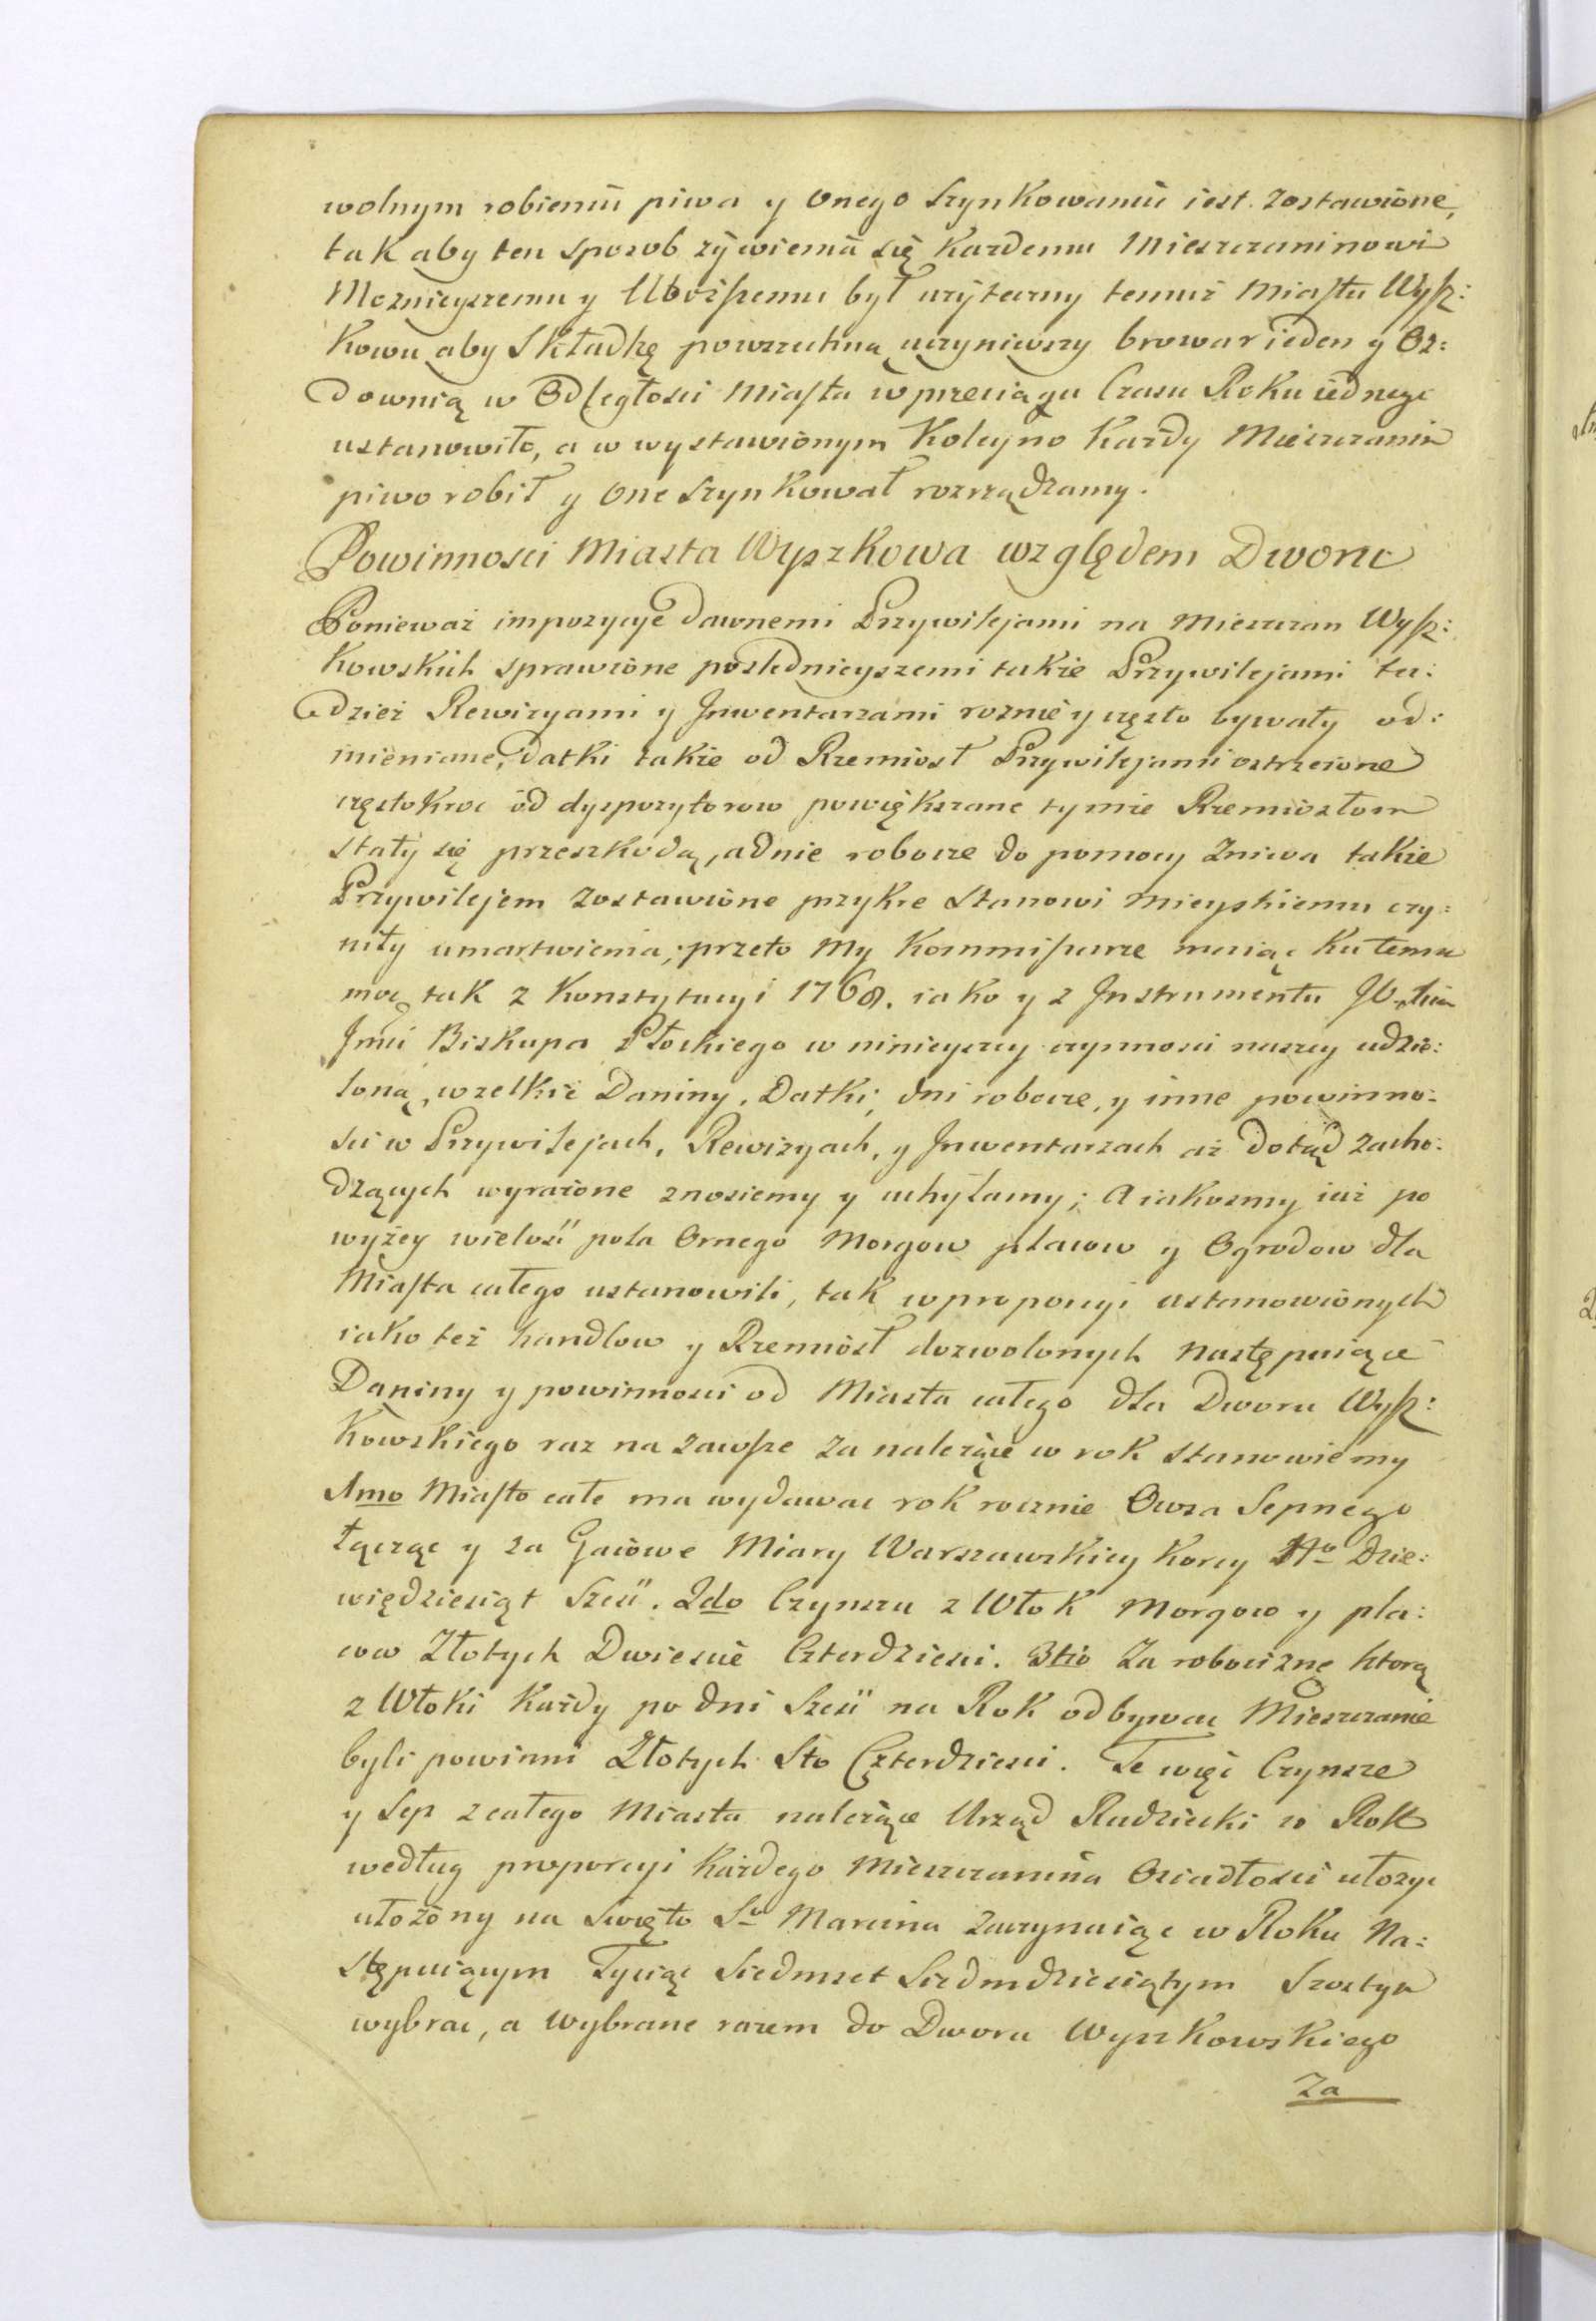 wolnym robieniu piwa y onego szynkowaniu iest zostawione,
tak aby ten sposob zywienia się kazdemu Mieszczaninowi
Moznieyszemu y Uboższemu był użyteczny temuż Miastu Wysz:
kowu aby Składkę powszechną uczyniwszy browar ieden y Oz:
downią w Odległosci Miasta w przeciągu Czasu Roku iednego
ustanowiło, a w wystawionym Koleyno Każdy Mieszczanin
piwo robił y one szynkował rozrządzamy.
Powinnosci Miasta Wyszkowa względem Dworu
Ponieważ impozycye dawnemi Przywilejami na Mieszczan Wysz:
kowskich sprawione poslednieyszemi takze Przywilejami tu:
dzież Rewizyami y Jnwentarzami roznie y często bywały od:
mieniane, datki takze od Rzemiosł Przywilejami ostrzeżone
częstokroc od dyspozytorow powiększane tymze Rzemiosłom
stały się przeszkodą, a dnie robocze do pomocy Zniwa takze
Przywilejem zostawione przykre Stanowi Mieyskiemu czy:
niły umartwienia; przeto My Kommissarze maiąc ku temu
moc tak z Konstytucyi 1768. iako y z Jnstrumentu
Jmci Biskupa Płockiego w ninieyszey czynnosci naszey udzie:
loną, wszelkie Daniny, Datki, dni robocze, y inne powinno:
sci w Przywilejach, Rewizyach, y Jnwentarzach aż dotąd zacho:
dzących wyrażone znosiemy y uchylamy; A iakosmy iuż po
wyżey wielosć pola Ornego Morgow placow y Ogrodow dla
Miasta całego ustanowili, tak w proporcyi ustanowionych
iako też handlow y Rzemiosł dozwolonych następuiące
Daniny y powinnosci od Miasta całego dla Dworu Wysz:
kowskiego raz na zawsze za należące w rok stanowiemy
1mo Miasto całe ma wydawac rok rocznie Owsa Sepnego
łącząc y za Gaiowe Miary Warszawskiey korcy No Dzie:
więdziesiąt Sześć. 2do Czynszu z Włok Morgow y pla:
cow Złotych Dwiescie Czterdziesci. 3tio Za robociznę ktorą
z Włoki każdy po dni Szesć na Rok odbywac Mieszczanie
byli powinni Złotych Sto Czterdziesci. Te więc Czynsze
y Sep z całego Miasta należące Urząd Radziecki w Rok
według proporcyi każdego Mieszczanina Osiadłosci ułozyc
ułożony na Swięto So Marcina zaczynaiąc w Roku Na:
stępuiącym Tysiąc Siedmset Siedmdziesiątym Szostym
wybrac, a wybrane razem do Dworu Wyszkowskiego
Za